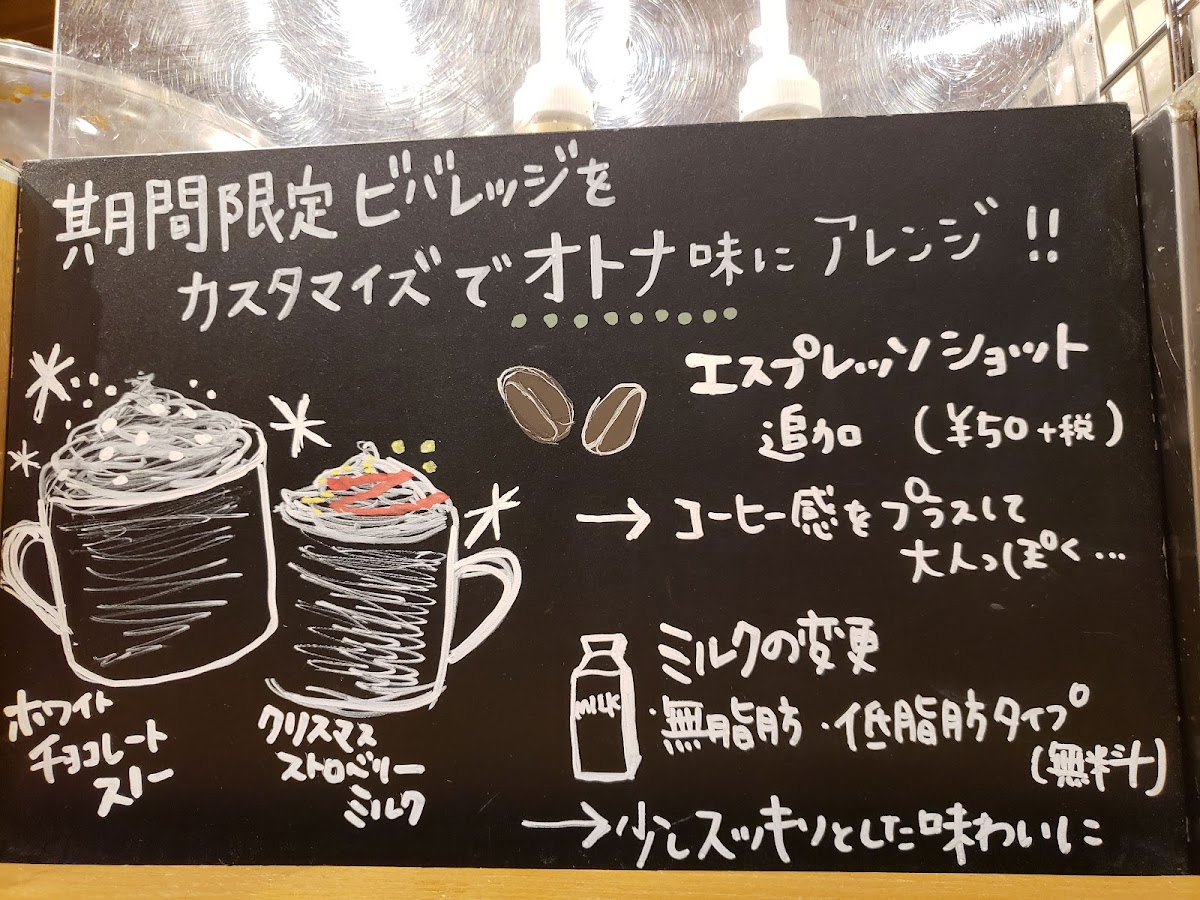 期間限定ビバレッジを
カスタマイズでオトナ味にアレンジ!!
エスプレッソショット
追加 (¥50+税)
→コーヒー感をプラスして
大人っぽく…
ミルクの変更
・無脂肪・低脂肪タイプ
(無料)
→少しスッキリとした味わいに
MILK
ホワイト
チョコレート
スノー
クリスマス
ストロベリー
ミルク